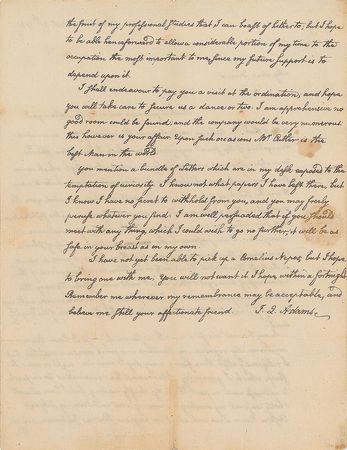 the fruit of my professional studies that I can boast of hitherto; but I hope
to be able henceforward to allow a considerable portion of my time to the
occupation the most important to me, since my future support is to
depend upon it.
I shall endeavour to pay you a visit at the ordination, and hope
you will take care to secure us a dance or two. I am apprehensive no
good room could be found; and the company would be very numerous
this however is your affair. Upon such occasions Mr. Cutler is the
best Man in the world
You mention a bundle of Letters which are in my desk exposed to the
temptation of curiosity. I know not what papers I have left there, but
I know I have no secret to withhold from you, and you may freely
peruse whatever you find. I am well persuaded that if you should
meet with any thing, which I could wish to go no further, it will be as
safe in your breast as in my own.
I have not yet been able to pick up a Cornelius Nepos; but I hope
to bring one with me. You will not want it I hope, within a fortnight
Remember me wherever my remembrance may be acceptable, and
believe me still your affectionate friend. J. Q. Adams.